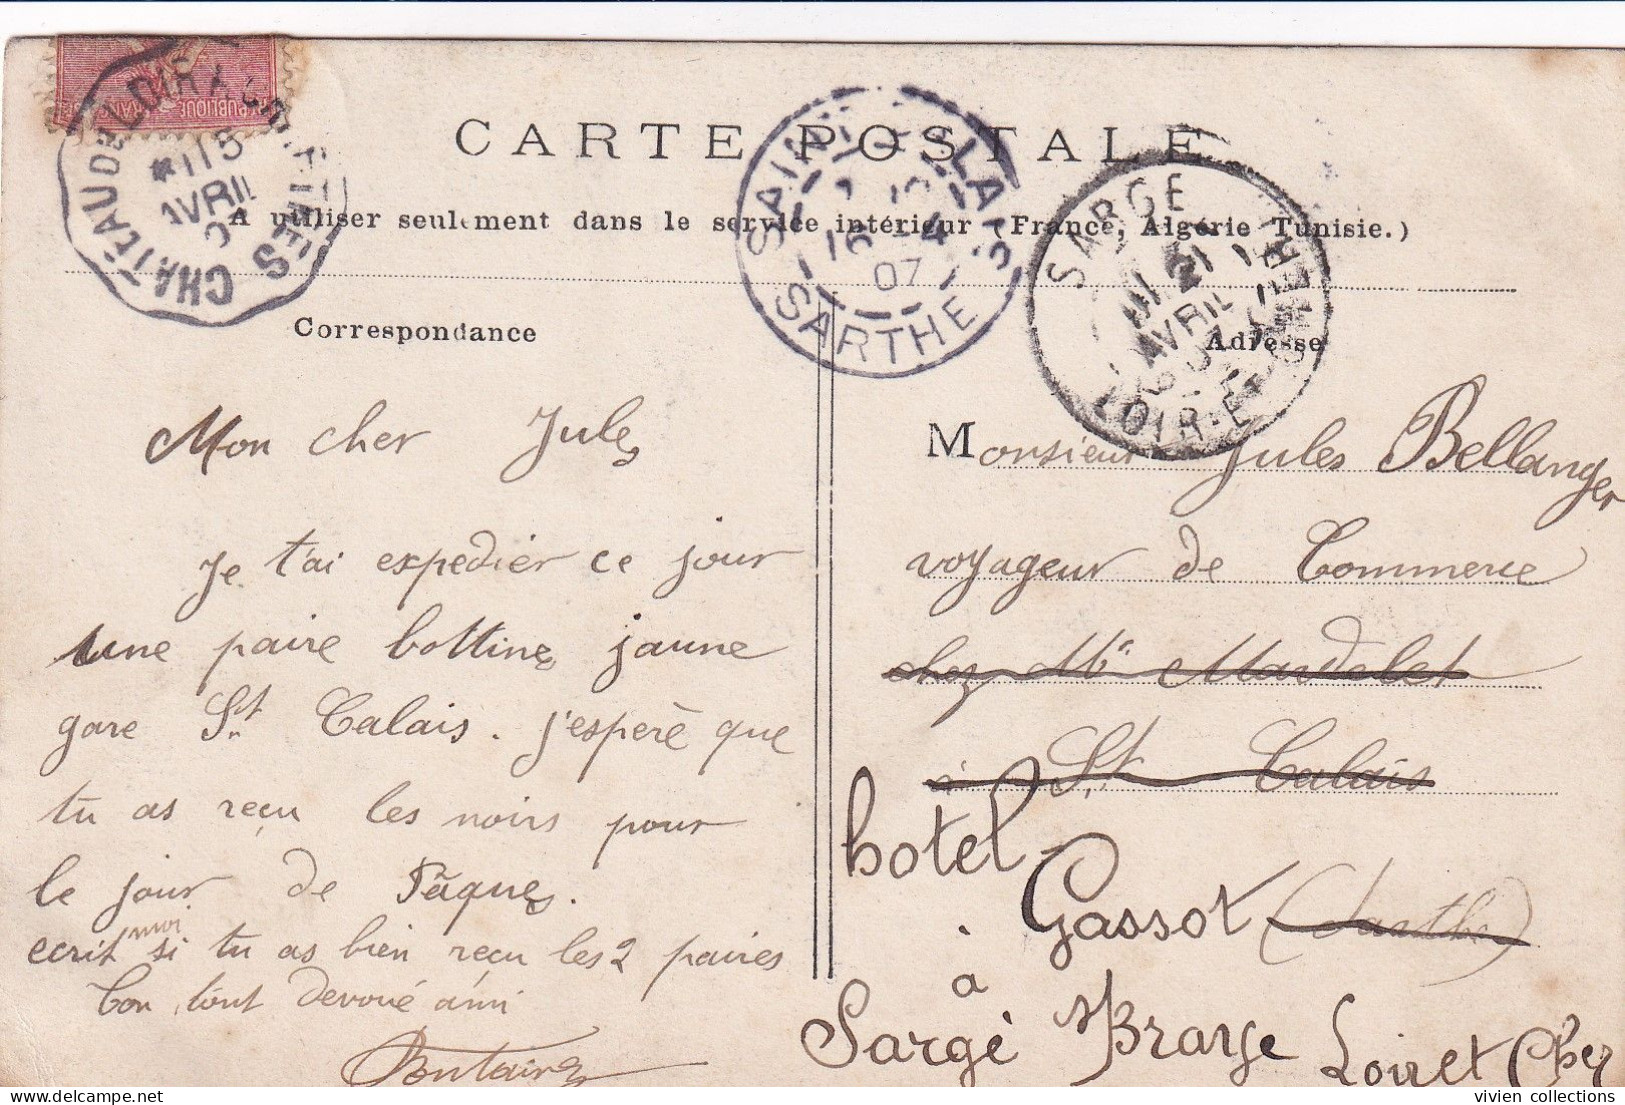 CARTE POSTALE
A utiliser seulement dans le service intérieur (France, Algérie Tunisie.)
RÉPUBLIQUE FRANÇAISE
CHATEAUDU-LOIR A
115
AVRIL
SAINT CALAIS
16 -4
07
SARTHE
SARGÉ
21
AVRIL
07
LOIR-ET-CHER
Correspondance
Mon cher Jules
Je t'ai expedier ce jour
une paire bottines jaune
gare St Calais. j'espère que
tu as reçu les noirs pour
le jour de Pâques.
ecrit moi si tu as bien reçu les 2 paires
ton tout devoué ami
Fontaine
Adresse
Monsieur Jules Bellanger
voyageur de Commerce
chez Mr Mardelet
à St Calais
hotel
Gassot (Sarthe)
à
Sargé s/ Braye Loir et Cher
vivien collections